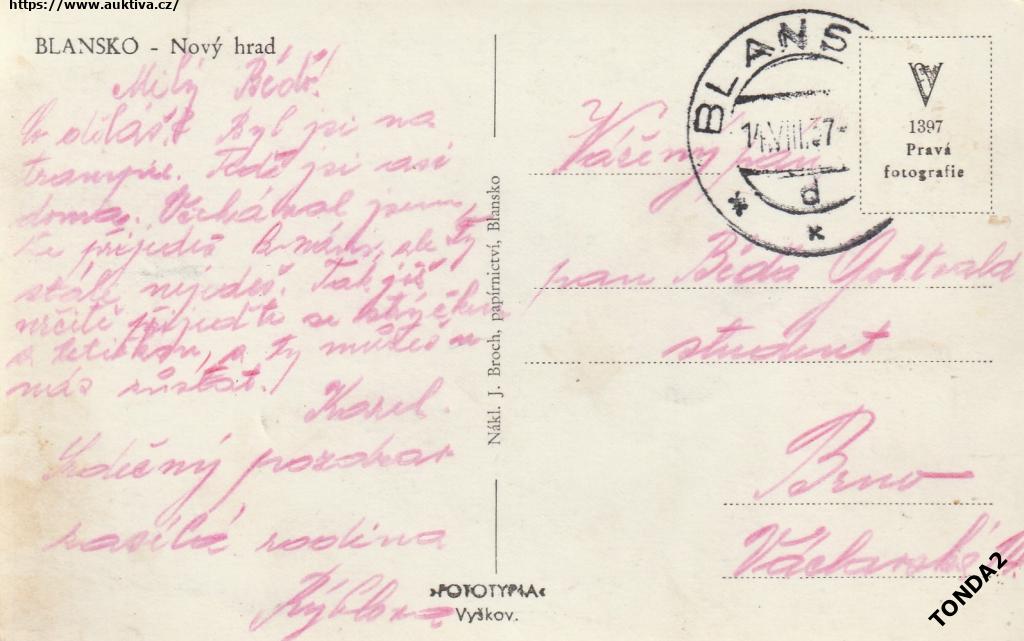 https://www.auktiva.cz/
BLANSKO - Nový hrad
Milý Béďo!
Co děláš? Byl jsi na
trampu. Teď jsi asi
doma. jsem,
že přijedeš k nám, ale ty
stále nejedeš. Tak již
určitě přijeďte se strýčkem
a tetičkou, a ty můžeš u
nás zůstat.
Karel.
Srdečný pozdrav
zasílá rodina
Nákl. J. Broch, papírnictví, Blansko
»FOTOTYPIA«
Vyškov.
BLANSK
14.VIII.37-
d
1397
Pravá
fotografie
Vážený pan
pan Béďa Gottvald
student
Brno
Václavská
TONDA2